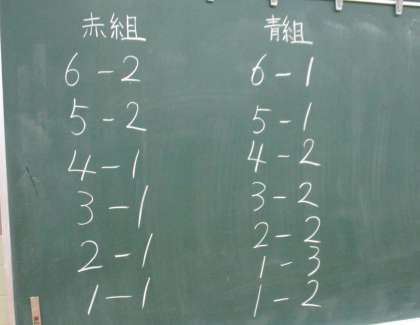 赤組
6-2
5-2
4-1
3-1
2-1
1-1
青組
6-1
5-1
4-2
3-2
2-2
1-3
1-2